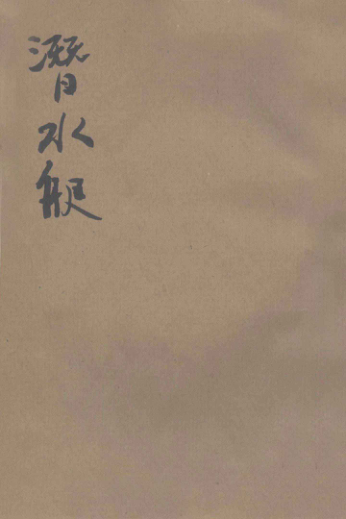 潛水艇